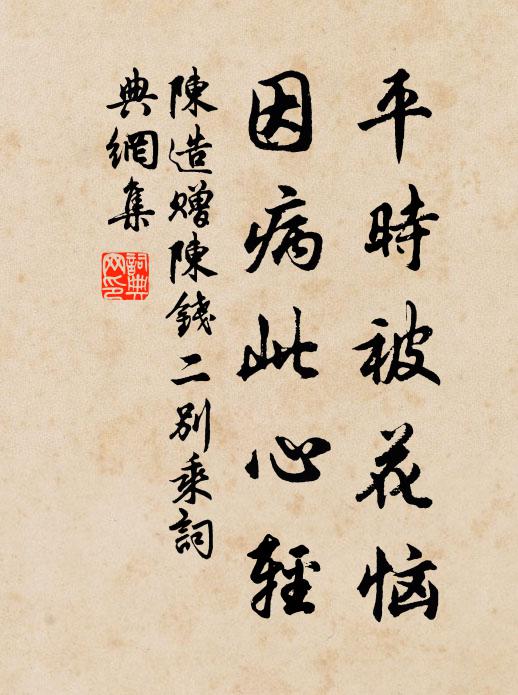 平時被花恼
因病此心輕
陳造贈陳錢二别乘詞
典網集
詞典网印